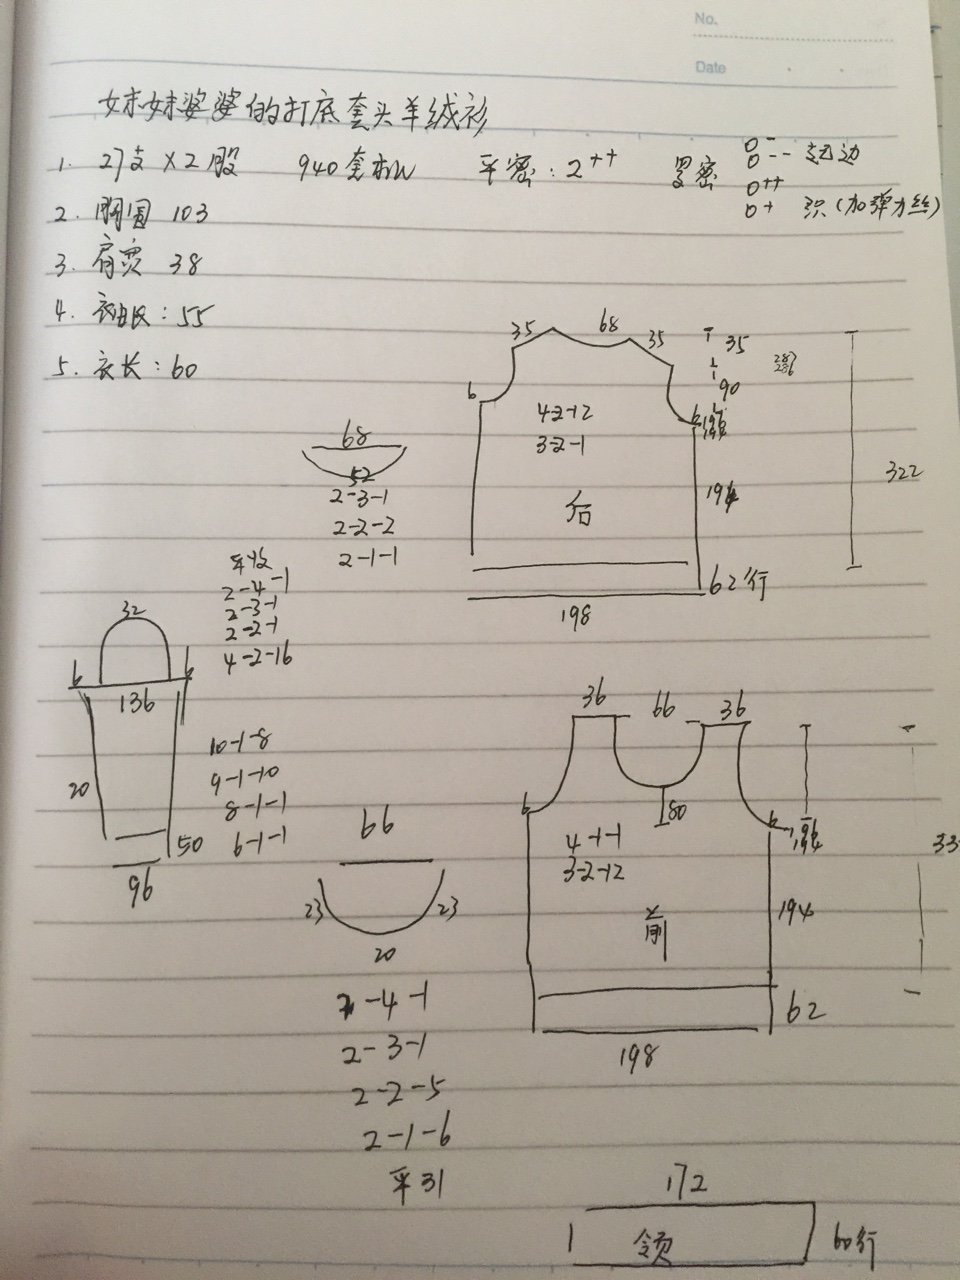 No.
Date
妹妹婆婆的打底套头羊绒衫
1. 27支×2股 940套机 平密:2++ 罗密 0- 0-- 起边
0++
0+ 织(加弹力丝)
2. 胸围 103
3. 肩宽 38
4. 衣袖长:55
5. 衣长:60
35 68 35
35
90
6
4-2-12
3-2-1
后
194
322
62行
198
68
52
2-3-1
2-2-2
2-1-1
平收
2-4-1
2-3-1
2-2-1
4-2-16
32
6 6
136
20
10-1-8
9-1-10
8-1-1
6-1-1
50
96
66
23 23
20
2-4-1
2-3-1
2-2-5
2-1-6
平31
36 66 36
80
6 6
4-1-1
3-2-12
前
194
62
198
172
1 领 60行